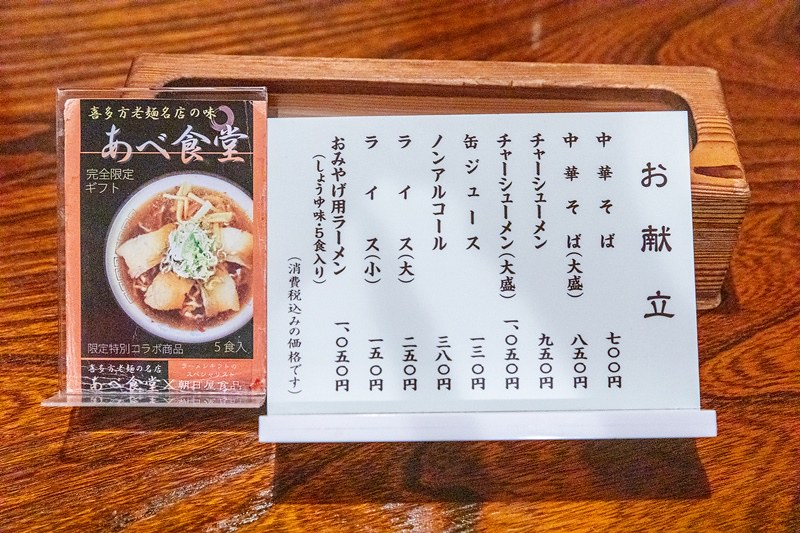 喜多方老麺名店の味
あべ食堂
完全限定
ギフト
限定特別コラボ商品 5食入
喜多方老麺の名店
あべ食堂×
ラーメンギフトの
スペシャリスト
朝日屋食品
お献立
中華そば 七〇〇円
中華そば(大盛) 八五〇円
チャーシューメン 九五〇円
チャーシューメン(大盛) 一、〇五〇円
缶ジュース 一三〇円
ノンアルコール 三八〇円
ライス(大) 二五〇円
ライス(小) 一五〇円
おみやげ用ラーメン 一、〇五〇円
(しょうゆ味・5食入り)
(消費税込みの価格です)